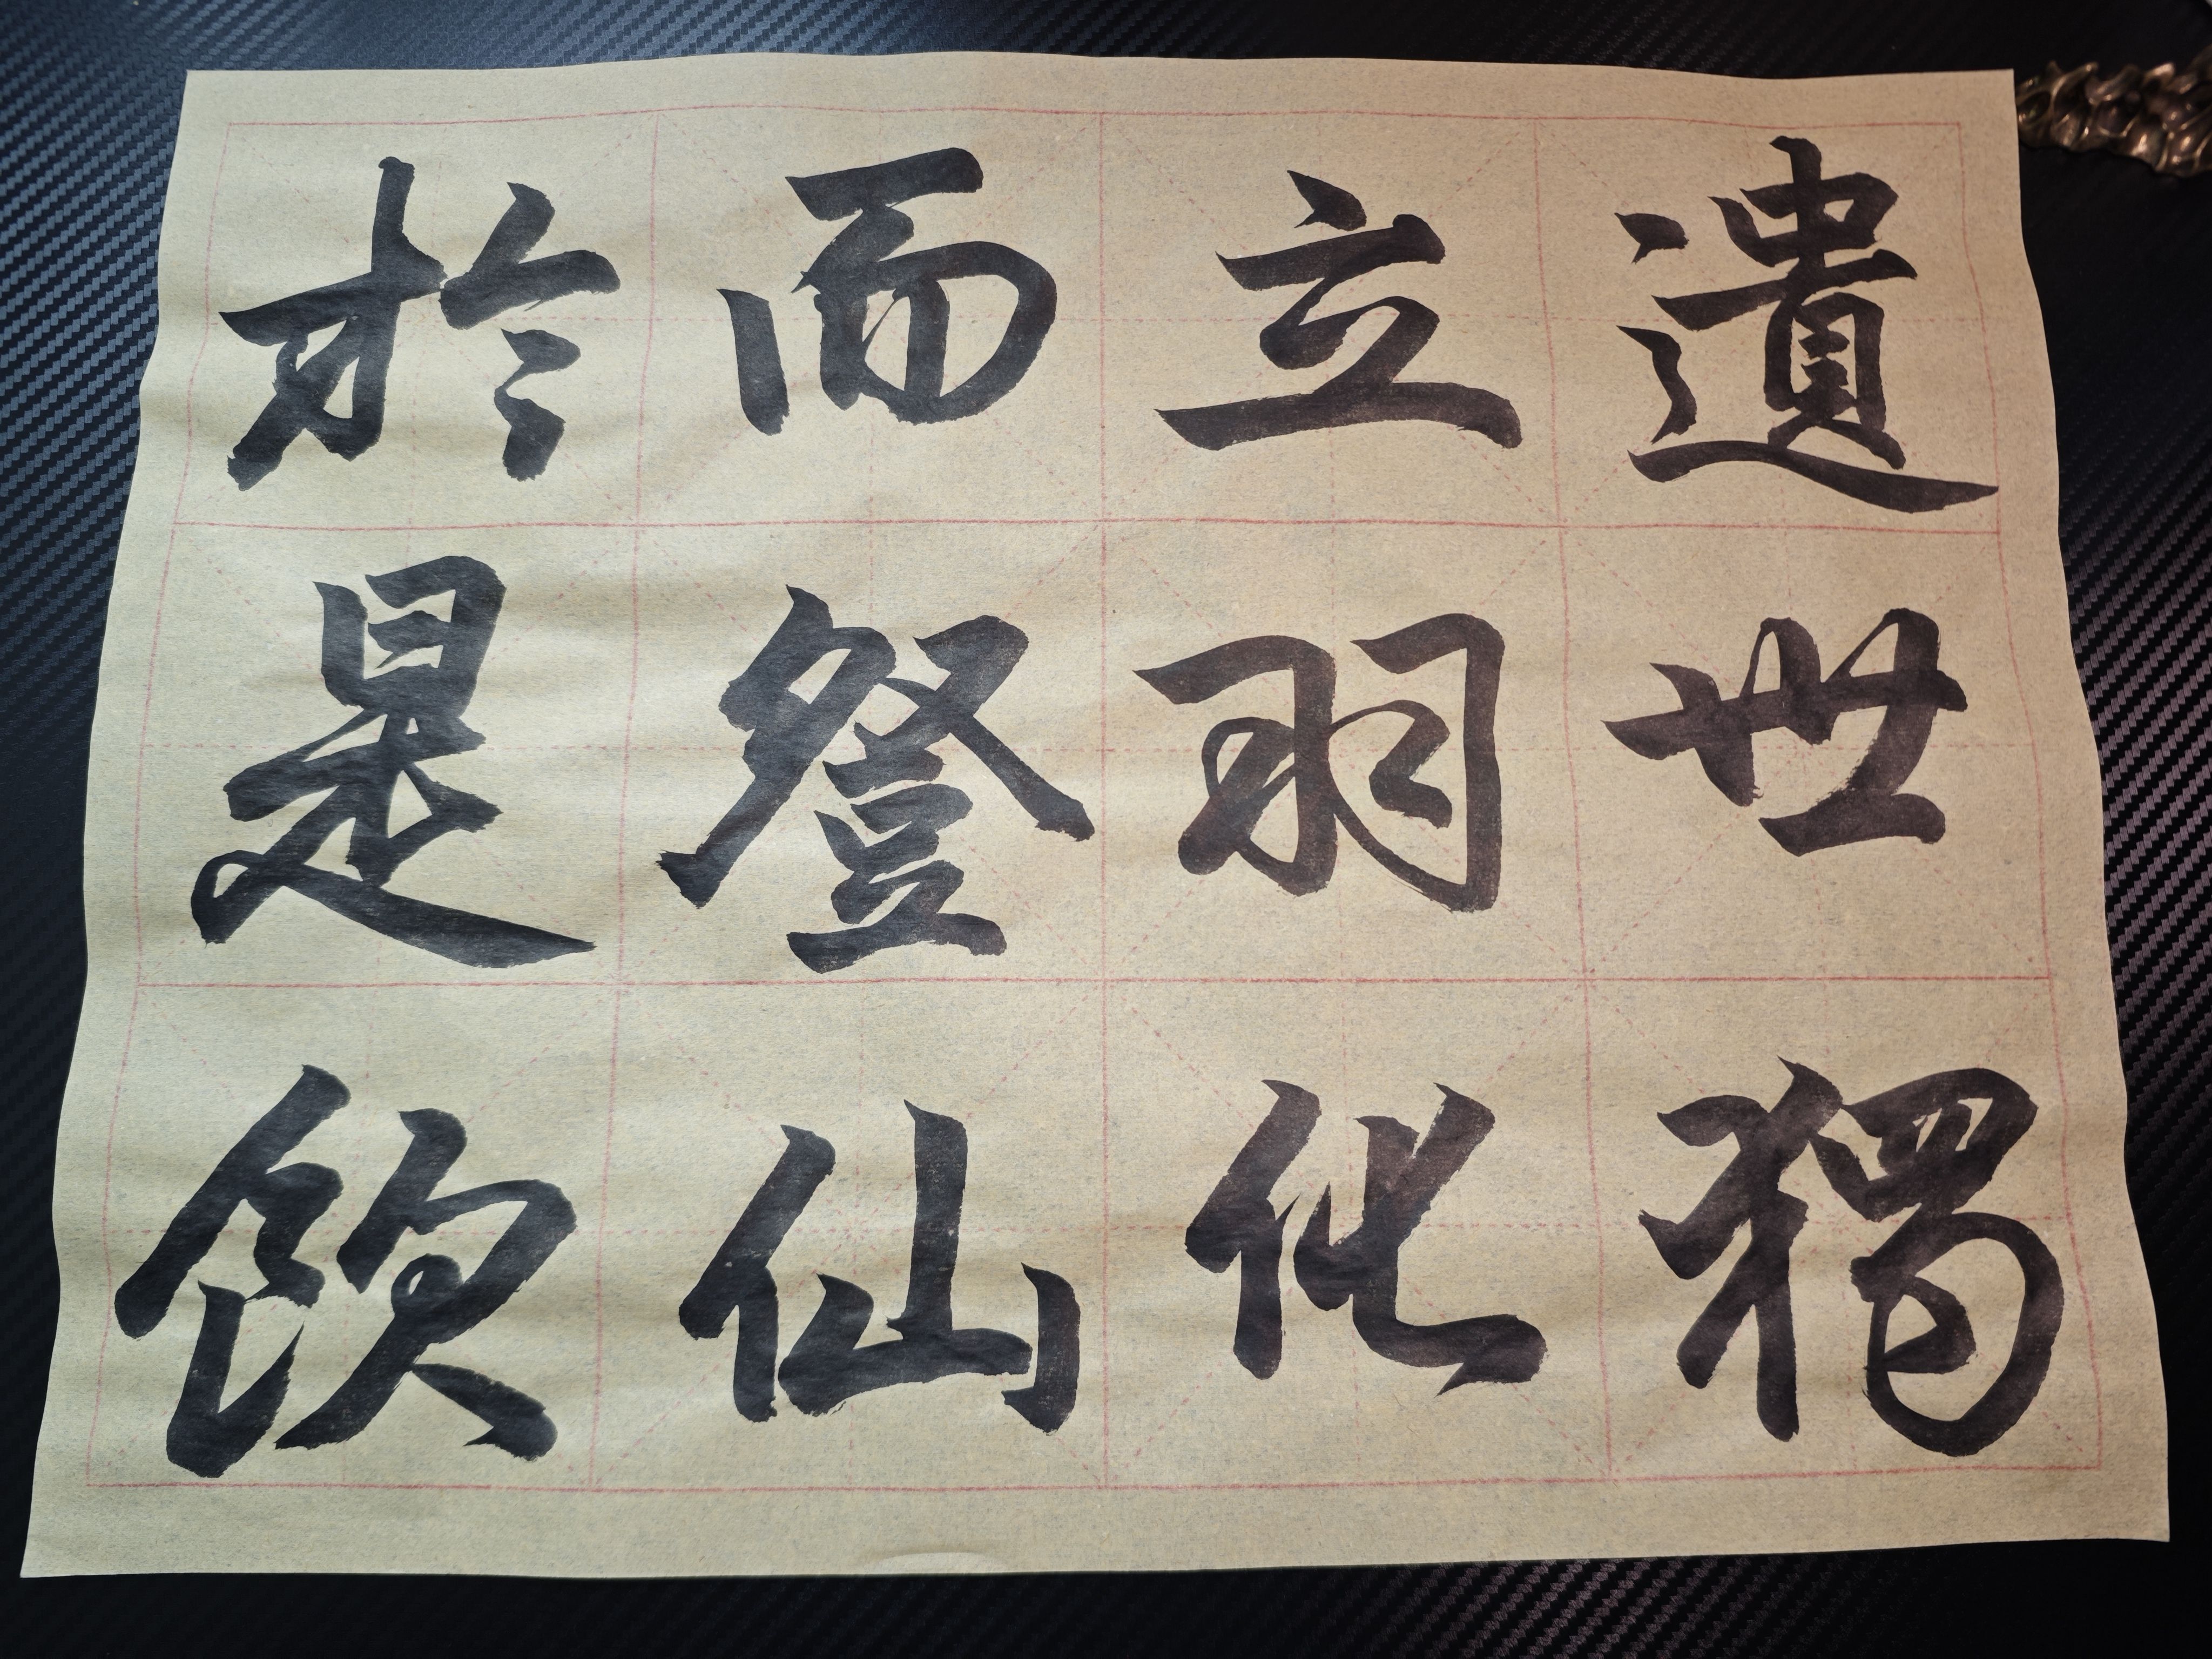 遺世獨
立羽化
而登仙
於是飲